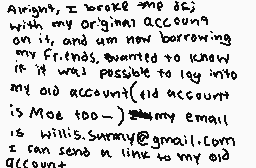 Alright, I broke the dsi
with my original account
on it, and am now borrowing
my friends, wanted to know
if it was possible to log into
my old account (old account
is Moe too-) my email
is willis.sunny@gmail.com
I can send a link to my old
account